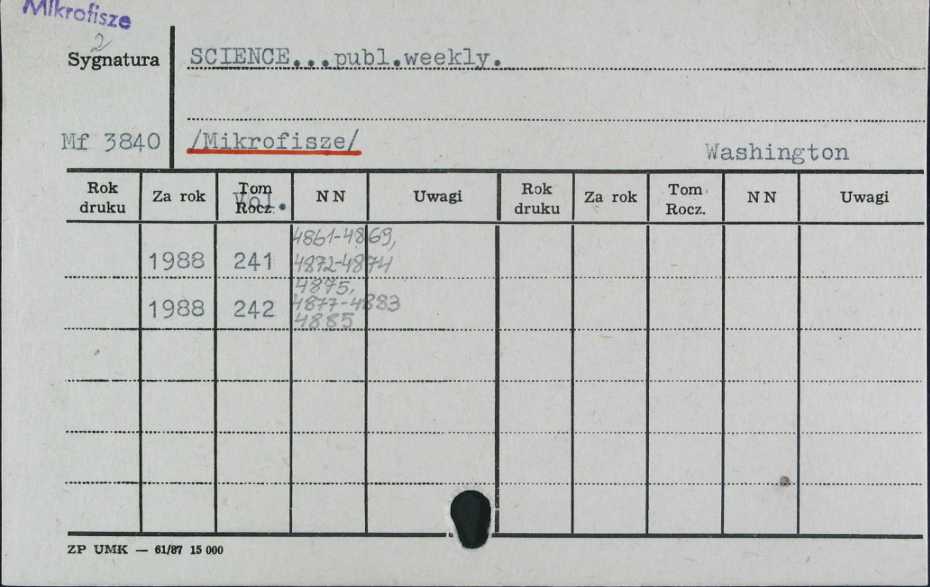 Mikrofisze
2
Sygnatura
SCIENCE...publ.weekly.
Mf 3840
/Mikrofisze/
Washington
Rok druku Za rok Tom Rocz. Vol. N N Uwagi Rok druku Za rok Tom Rocz. N N Uwagi
4861-4869,
1988 241 4872-4874
4875,
1988 242 4877-4883
4885
ZP UMK — 61/87 15 000